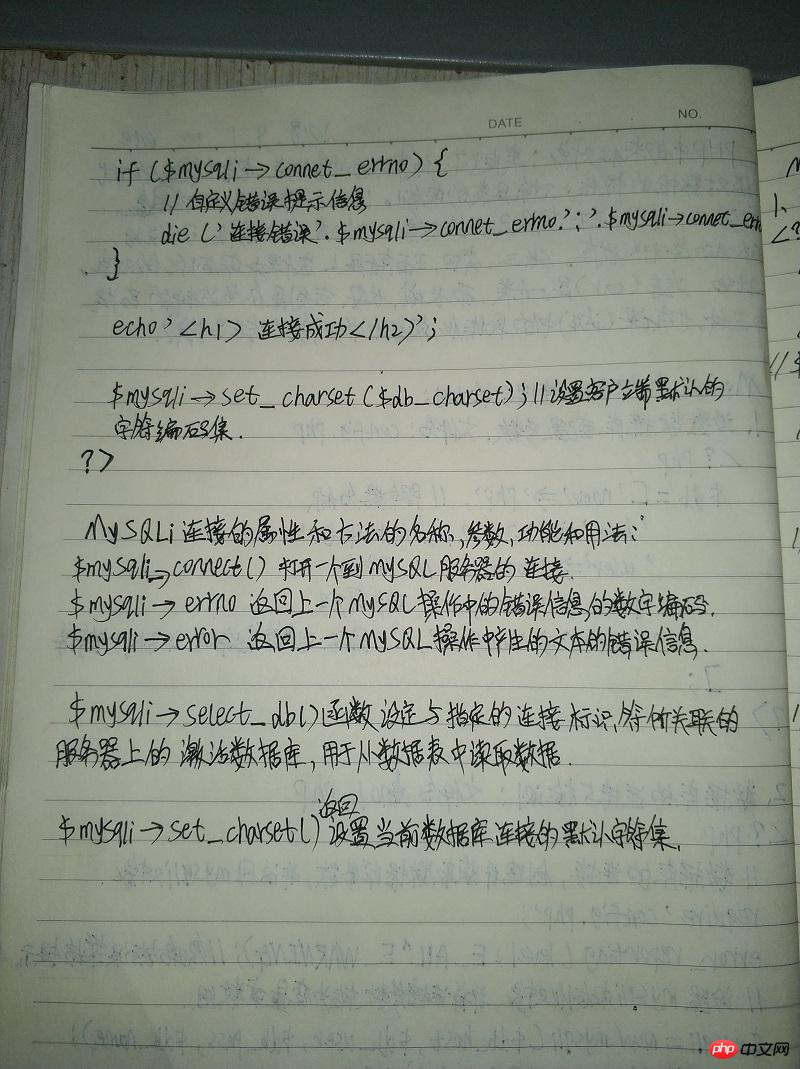 DATE NO.
if ($mysqli->connet_errno) {
// 自定义错误提示信息
die ('连接错误'.$mysqli->connet_errno.':'.$mysqli->connet_err
}
echo '<h1> 连接成功</h2>';
$mysqli->set_charset($db_charset); //设置客户端默认的
字符编码集.
?>
MySQLi连接的属性和方法的名称,参数,功能和用法:
$mysqli->connect() 打开一个到MySQL服务器的连接.
$mysqli->errno 返回上一个MySQL操作中的错误信息的数字编码.
$mysqli->error 返回上一个MySQL操作中产生的文本的错误信息.
$mysqli->select_db()函数设定与指定的连接标识符所关联的
服务器上的激活数据库,用于从数据表中读取数据.
返回
$mysqli->set_charset()设置当前数据库连接的默认字符集.
php 中文网